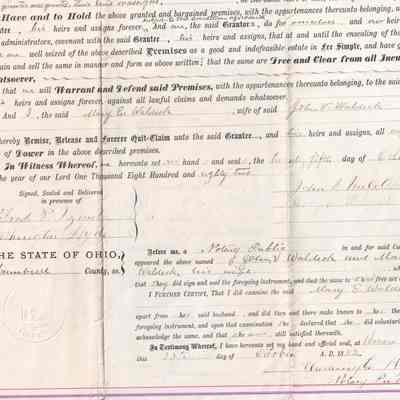 Have and to Hold the above granted and bargained premises, with the appurtenances thereunto belonging,
his heirs and assigns forever. And we, the said Grantors, do for ourselves and our heirs
administrators, covenant with the said Grantee, his heirs and assigns, that at and until the ensealing of the
well seized of the above described Premises as a good and indefeasible estate in Fee Simple, and have
and sell the same in manner and form as above written; that the same are Free and Clear from all Incu
whatsoever,
that we will Warrant and Defend said Premises, with the appurtenances thereunto belonging, to the said
heirs and assigns forever, against all lawful claims and demands whatsoever.
And I, the said Mary E. Waldeck, wife of said John V. Waldeck
hereby Remise, Release and Forever Quit-Claim unto the said Grantee, and his heirs and assigns, all
of Dower in the above described premises.
In Witness Whereof, We hereunto set our hands and seals, the twenty fifth day of
the year of our Lord One Thousand Eight Hundred and eighty two
Signed, Sealed and Delivered
in presence of
John
THE STATE OF OHIO,
Trumbull County, ss.
Before me, a Notary Public in and for said Cou
appeared the above named John V. Waldeck and Mar
Waldeck, his wife
that they did sign and seal the foregoing instrument, and that the same is their free act
I FURTHER CERTIFY, That I did examine the said Mary E. Walde
apart from her said husband, and did then and there make known to her the
foregoing instrument, and upon that examination she declared that she did voluntar
acknowledge the same, and that she was still satisfied therewith.
In Testimony Whereof, I have hereunto set my hand and official seal, at Warren
this 25th day of October A. D. 1882
Notary Pub